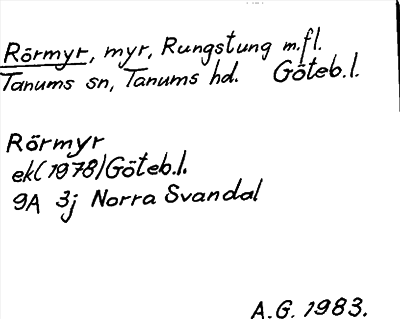 Rörmyr, myr, Rungstung m.fl.
Tanums sn, Tanums hd. Göteb.l.
Rörmyr
ek(1978)Göteb.l.
9A 3j Norra Svandal
A.G. 1983.